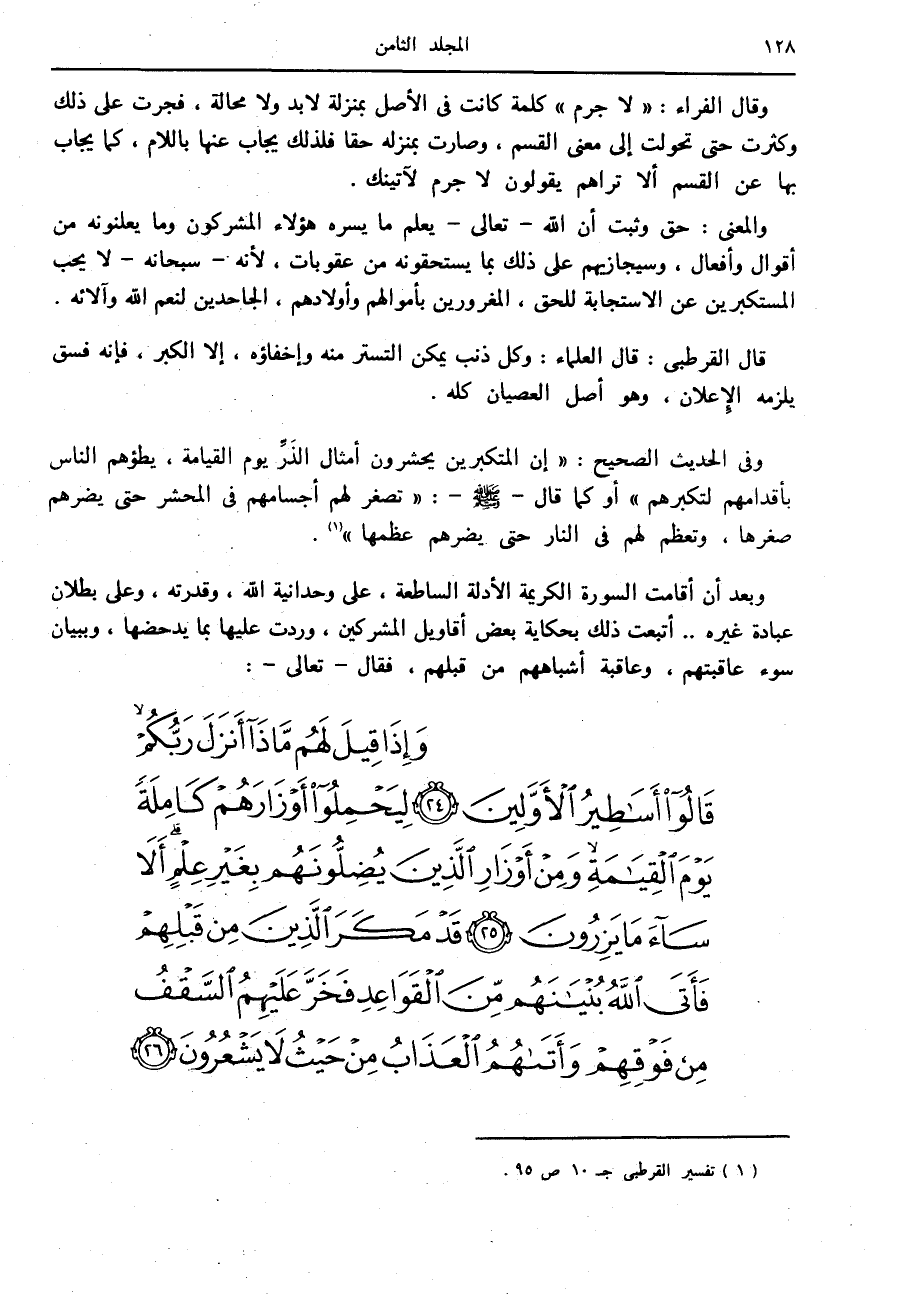 ١٢٨ المجلد الثامن
وقال الفراء : « لا جرم » كلمة كانت فى الأصل بمنزلة لابد ولا محالة ، فجرت على ذلك
وكثرت حتى تحولت إلى معنى القسم ، وصارت بمنزله حقا فلذلك يجاب عنها باللام ، كما يجاب
بها عن القسم ألا تراهم يقولون لا جرم لآتينك .
والمعنى : حق وثبت أن الله - تعالى - يعلم ما يسره هؤلاء المشركون وما يعلنونه من
أقوال وأفعال ، وسيجازيهم على ذلك بما يستحقونه من عقوبات ، لأنه - سبحانه - لا يحب
المستكبرين عن الاستجابة للحق ، المغرورين بأموالهم وأولادهم ، الجاحدين لنعم الله وآلائه .
قال القرطبى : قال العلماء : وكل ذنب يمكن التستر منه وإخفاؤه ، إلا الكبر ، فإنه فسق
يلزمه الإِعلان ، وهو أصل العصيان كله .
وفى الحديث الصحيح : « إن المتكبرين يحشرون أمثال الذَرِّ يوم القيامة ، يطؤهم الناس
بأقدامهم لتكبرهم » أو كما قال - ﷺ - : « تصغر لهم أجسامهم فى المحشر حتى يضرهم
صغرها ، وتعظم لهم فى النار حتى يضرهم عظمها »(١) .
وبعد أن أقامت السورة الكريمة الأدلة الساطعة ، على وحدانية الله ، وقدرته ، وعلى بطلان
عبادة غيره .. أتبعت ذلك بحكاية بعض أقاويل المشركين ، وردت عليها بما يدحضها ، وببيان
سوء عاقبتهم ، وعاقبة أشباههم من قبلهم ، فقال - تعالى - :
وَإِذَا قِيلَ لَهُم مَّاذَآ أَنزَلَ رَبُّكُمْ ۙ
قَالُوٓا۟ أَسَٰطِيرُ ٱلْأَوَّلِينَ ٢٤ لِيَحْمِلُوٓا۟ أَوْزَارَهُمْ كَامِلَةً
يَوْمَ ٱلْقِيَٰمَةِ ۙ وَمِنْ أَوْزَارِ ٱلَّذِينَ يُضِلُّونَهُم بِغَيْرِ عِلْمٍ ۗ أَلَا
سَآءَ مَا يَزِرُونَ ٢٥ قَدْ مَكَرَ ٱلَّذِينَ مِن قَبْلِهِمْ
فَأَتَى ٱللَّهُ بُنْيَٰنَهُم مِّنَ ٱلْقَوَاعِدِ فَخَرَّ عَلَيْهِمُ ٱلسَّقْفُ
مِن فَوْقِهِمْ وَأَتَىٰهُمُ ٱلْعَذَابُ مِنْ حَيْثُ لَا يَشْعُرُونَ ٢٦
( ١ ) تفسير القرطبى جـ ١٠ ص ٩٥ .